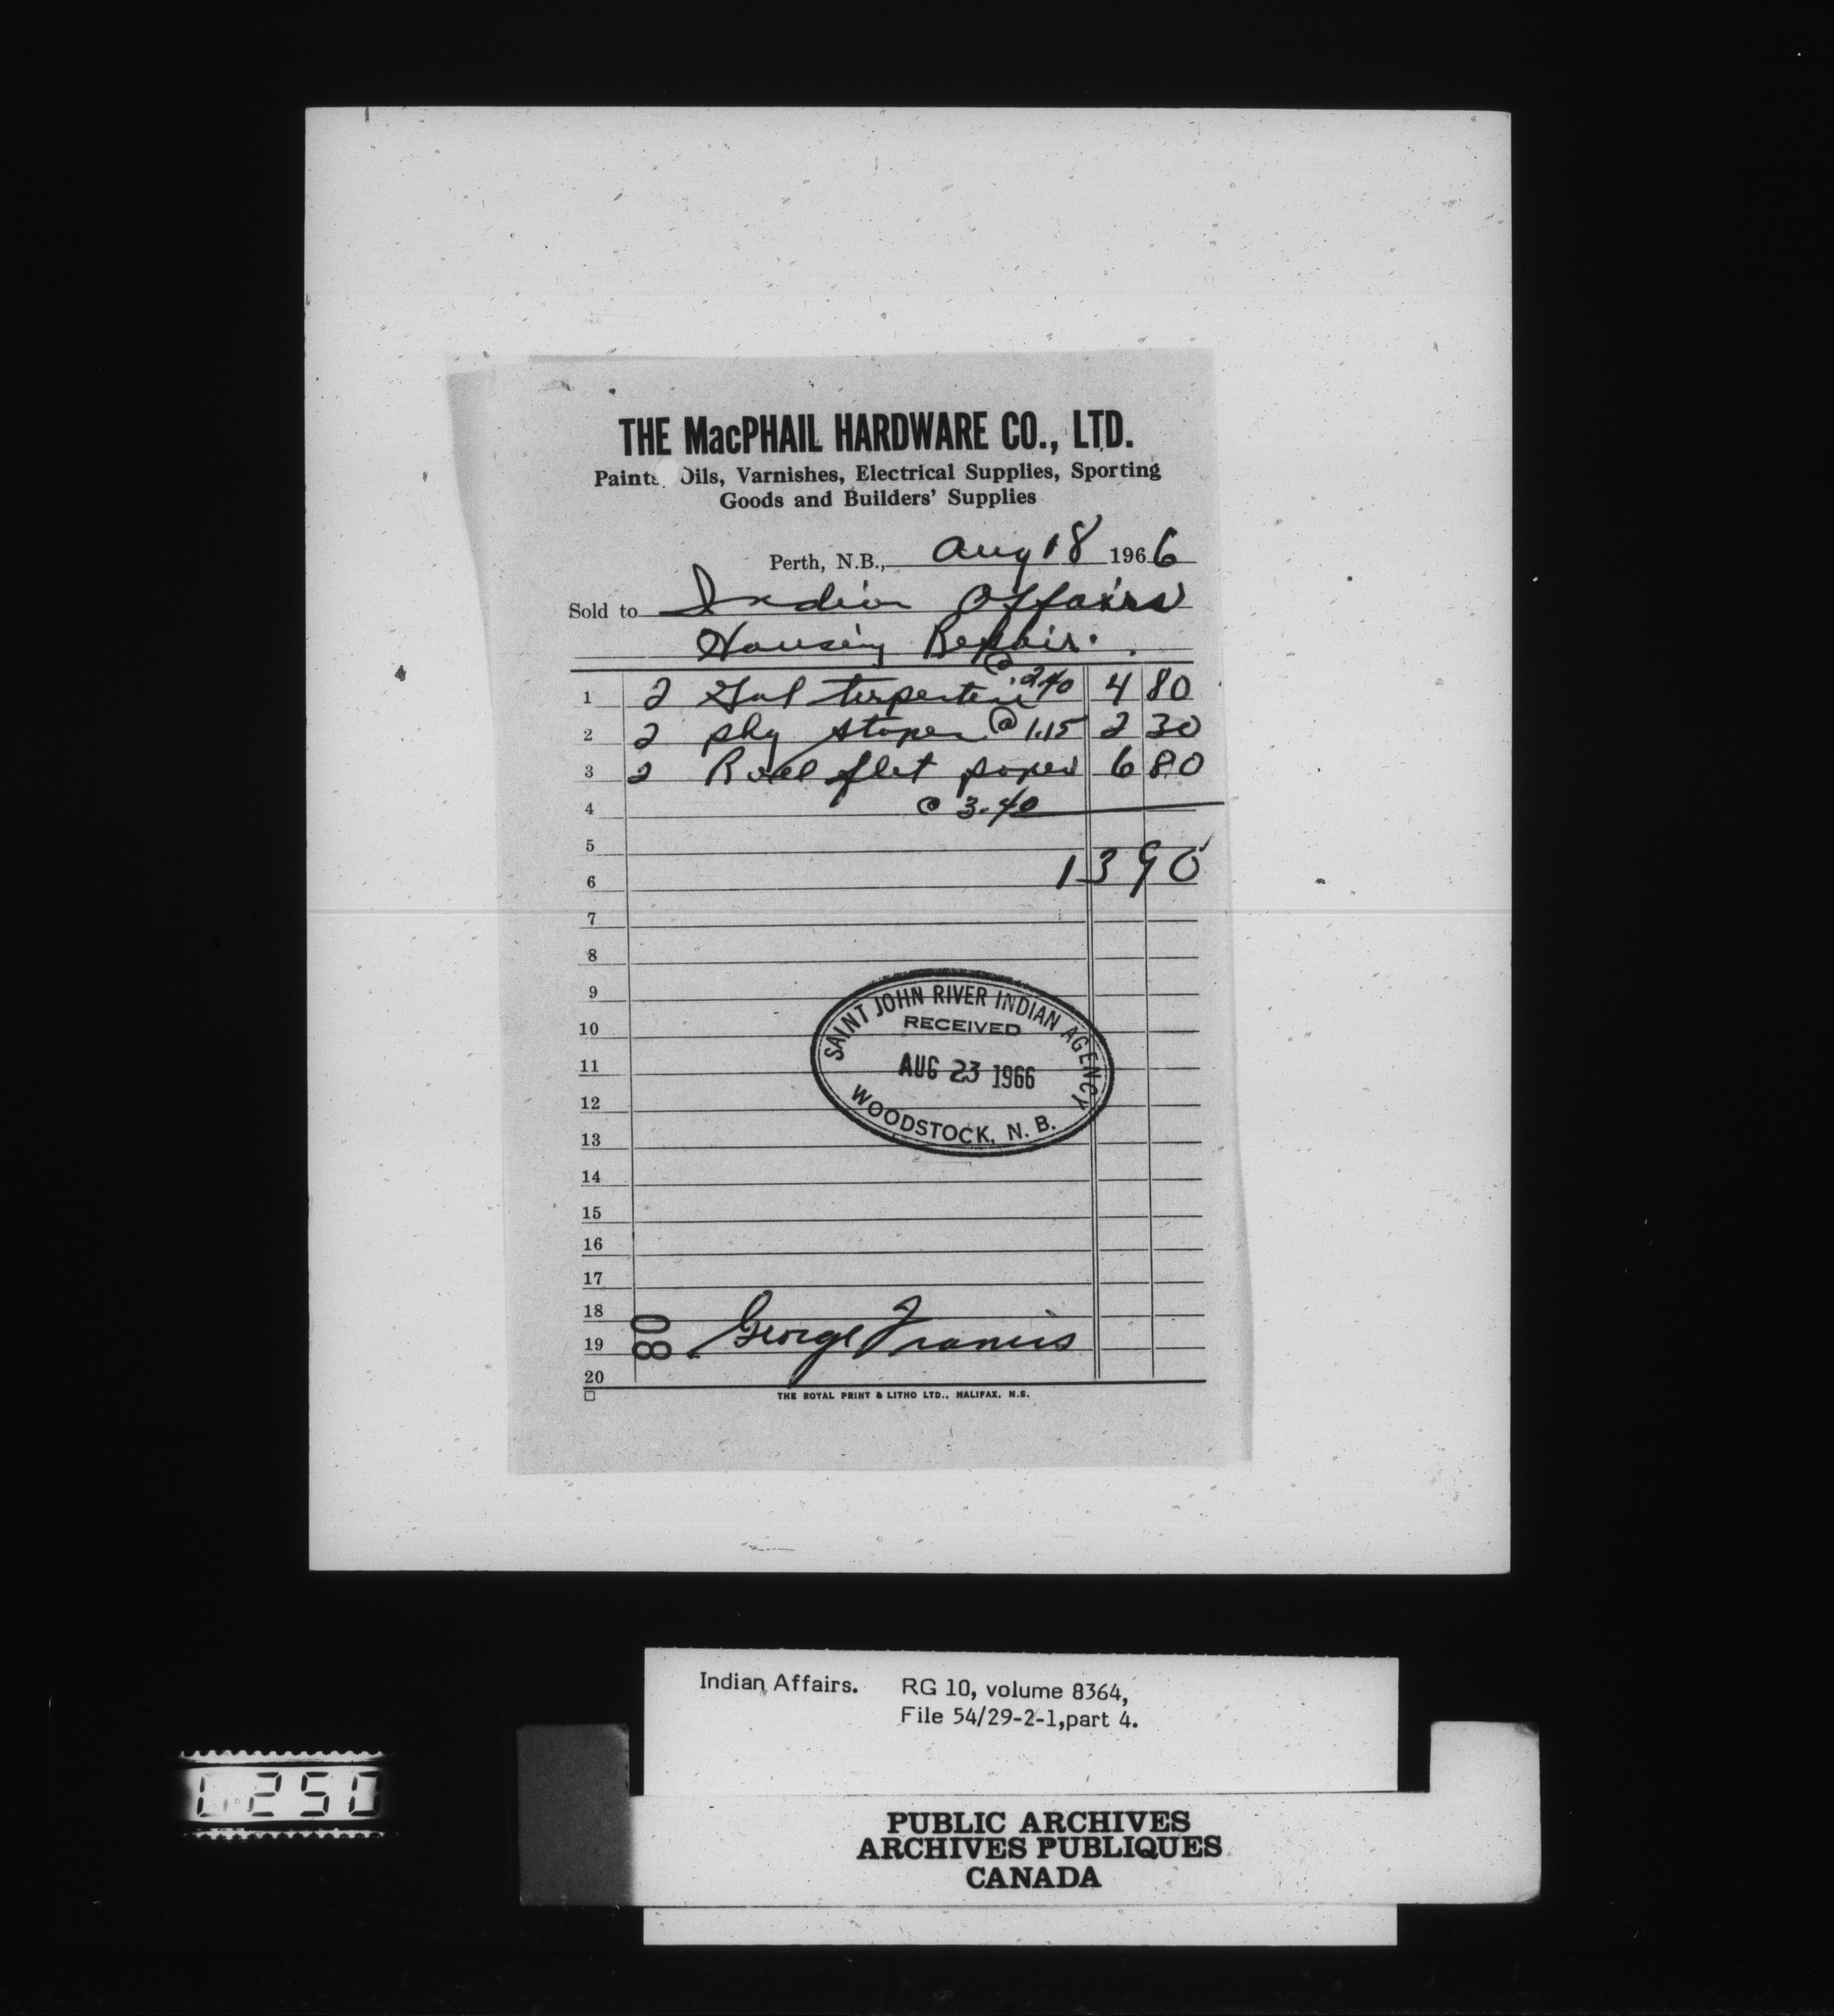 THE MacPHAIL HARDWARE CO., LTD.
Paints, Oils, Varnishes, Electrical Supplies, Sporting
Goods and Builders' Supplies
Perth, N.B., Aug 18 1966
Sold to Indian Affairs
Housing Repair.
1 2 Gal terpentine @ 2.40 4 80
2 2 pkg @ 1.15 2 30
3 2 flet paper 6 80
4 @ 3.40
5
13 90
6
7
8
9
10
11
12
13
14
15
16
17
18
19
20
SAINT JOHN RIVER INDIAN AGENCY
RECEIVED
AUG 23 1966
WOODSTOCK, N. B.
80
George Francis
THE ROYAL PRINT & LITHO LTD., HALIFAX, N.S.
Indian Affairs. RG 10, volume 8364,
File 54/29-2-1,part 4.
250
PUBLIC ARCHIVES
ARCHIVES PUBLIQUES
CANADA